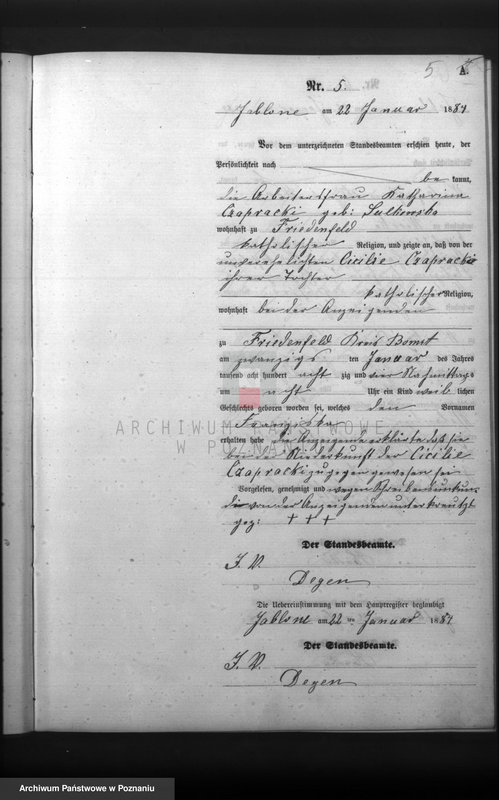 5
A.
Nr. 5.
Jablone am 22 Januar 1884
Vor dem unterzeichneten Standesbeamten erschien heute, der
Persönlichkeit nach
be kannt,
die Arbeitersfrau Katharina
Czapracki geb: Sulkowska
wohnhaft zu Friedenfeld
katholischer Religion, und zeigte an, daß von der
unverehelichten Cicilie Czapracki
ihrer Tochter
katholischer Religion,
wohnhaft bei der Anzeigenden
zu Friedenfeld Kreis Bomst
am zwanzigs ten Januar des Jahres
tausend acht hundert acht zig und vier Nachmittags
um acht Uhr ein Kind weib lichen
Geschlechts geboren worden sei, welches den Vornamen
Franziska
erhalten habe die Anzeigende erklärte daß sie
bei der Niederkunft der Cicilie
Czapracki zugegen gewesen sei
Vorgelesen, genehmigt und wegen Schreibensunkun
de von der Anzeigenden unterkreuzt
gez: + + +
Der Standesbeamte.
I. V.
Degen
Die Uebereinstimmung mit dem Hauptregister beglaubigt
Jablone am 22 ten Januar 1884
Der Standesbeamte.
I. V.
Degen
ARCHIWUM PAŃSTWOWE
W POZNANIU
Archiwum Państwowe w Poznaniu